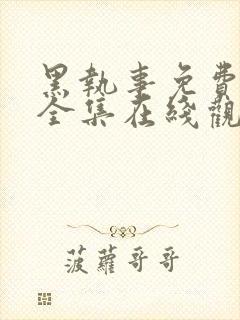 黑執事免費
全集在綫觀
菠蘿哥哥